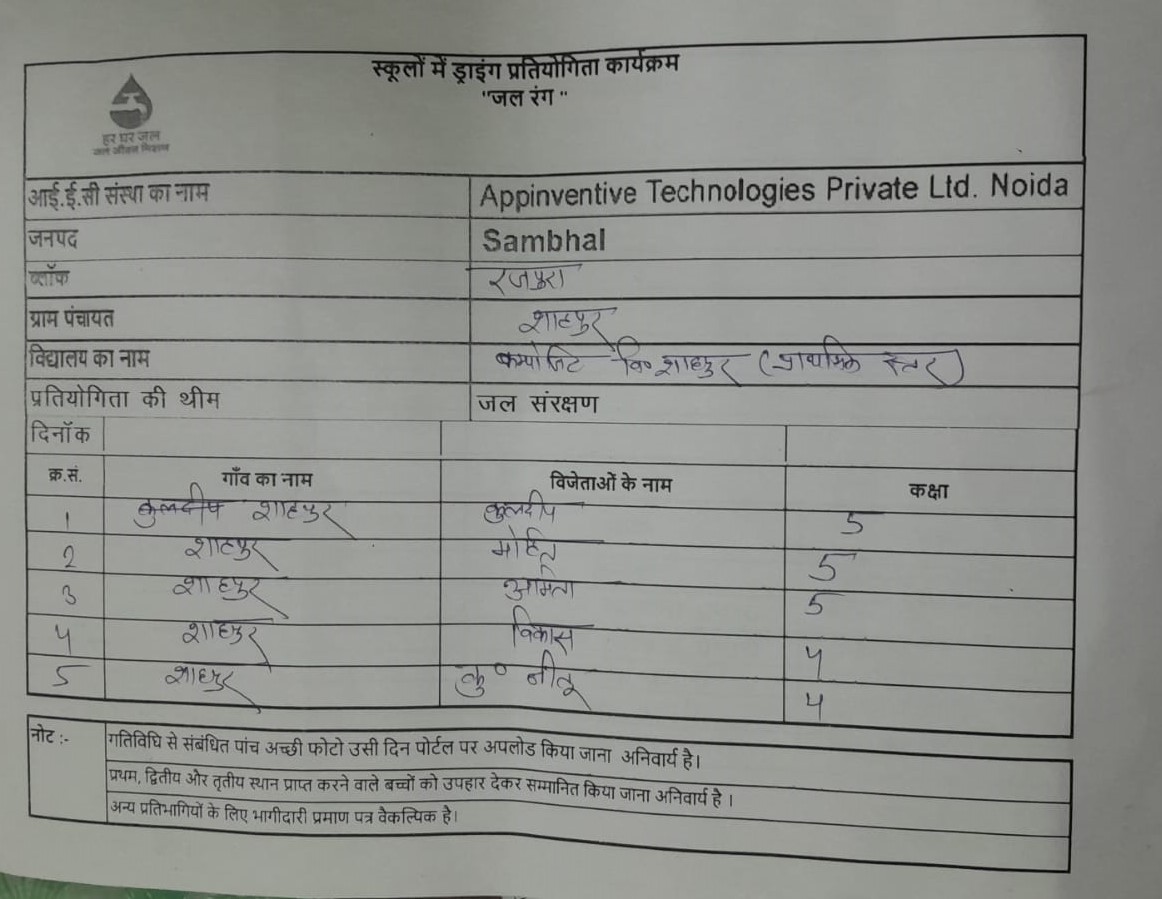 स्कूलों में ड्राइंग प्रतियोगिता कार्यक्रम
"जल रंग "
हर घर जल
जल जीवन मिशन
आई.ई.सी संस्था का नाम Appinventive Technologies Private Ltd. Noida
जनपद Sambhal
ब्लॉक रजपुरा
ग्राम पंचायत शाहपुर
विद्यालय का नाम कम्पोजिट वि० शाहपुर (प्राथमिक स्तर)
प्रतियोगिता की थीम जल संरक्षण
दिनॉक
क्र.सं. गाँव का नाम विजेताओं के नाम कक्षा
1 शाहपुर कुलदीप 5
2 शाहपुर मोहित 5
3 शाहपुर 5
4 शाहपुर विकास 4
5 शाहपुर कु० नीतू 4
नोट :- गतिविधि से संबंधित पांच अच्छी फोटो उसी दिन पोर्टल पर अपलोड किया जाना अनिवार्य है।
प्रथम, द्वितीय और तृतीय स्थान प्राप्त करने वाले बच्चों को उपहार देकर सम्मानित किया जाना अनिवार्य है ।
अन्य प्रतिभागियों के लिए भागीदारी प्रमाण पत्र वैकल्पिक है।